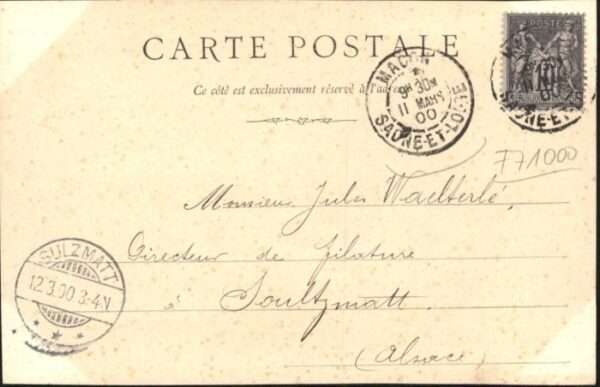 CARTE POSTALE
Ce côté est exclusivement réservé à l'adresse
MACON
9H 30M
11 MARS
00
SAONE-ET-LOIRE
POSTE
10
SAONE-ET-
F71000
Monsieur Jules Waelterlé,
Directeur de filature
à Soultzmatt.
(Alsace)
SULZMATT
12.3.00 3-4N